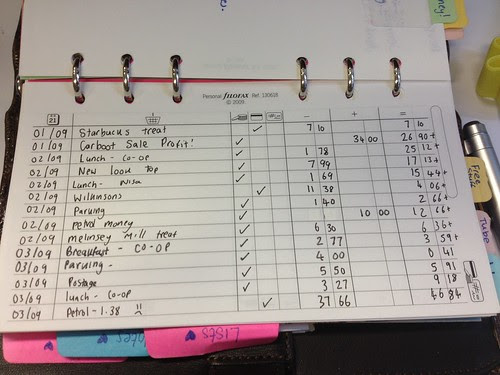 ney!
Personal FILOFAX Ref. 130608
© 2009
21 - + =
01/09 Starbucks treat ✓ 7 10 7 10
01/09 Carboot Sale Profit! ✓ 34 00 26 90+
02/09 Lunch - co-op ✓ 1 78 25 12+
02/09 New look Top ✓ 7 99 17 13+
02/09 Lunch - Nisa ✓ 1 69 15 44+
02/09 Wilkinsons ✓ 11 38 4 06+
02/09 Parking ✓ 1 40 2 66+
02/09 petrol money ✓ 10 00 12 66+
02/09 melinsey Mill treat ✓ 6 30 6 36+
03/09 Breakfast - CO-OP ✓ 2 77 3 59+
03/09 Parking - ✓ 4 00 0 41
03/09 Postage ✓ 5 50 5 91
03/09 lunch - co-op ✓ 3 27 9 18
03/09 Petrol - 1.38 !! ✓ 37 66 46 84
Tube
Lists